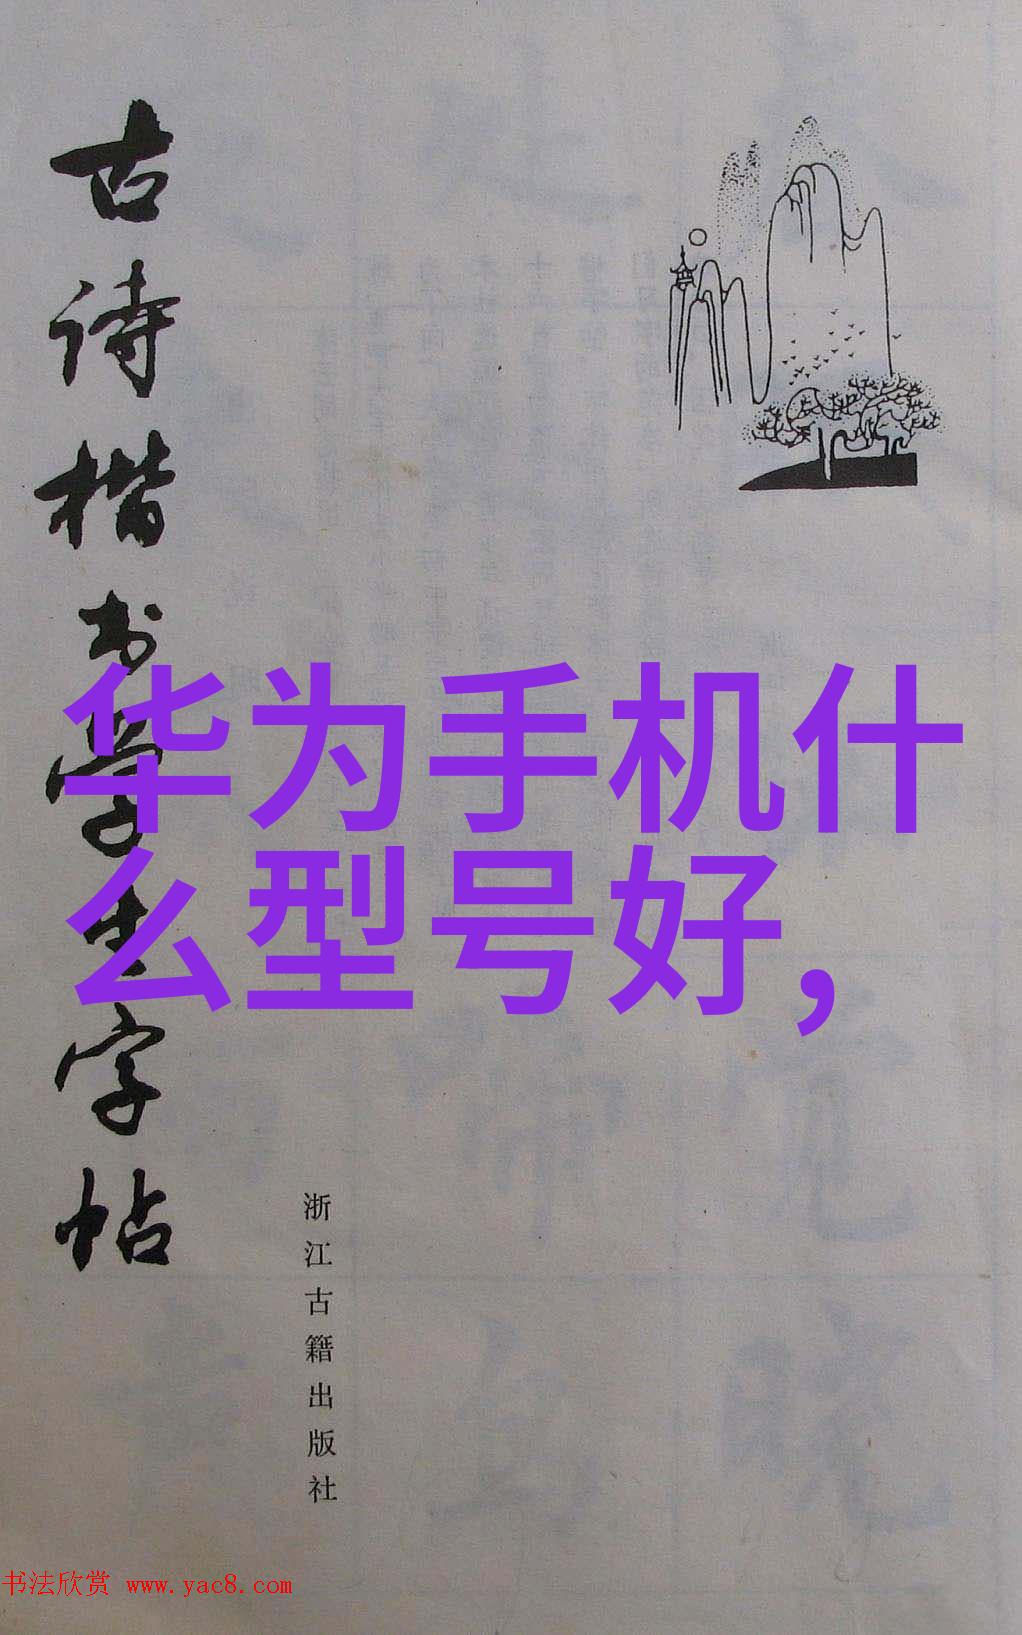 古诗楷书学生字帖
华为手机什
么型号好，
浙江古籍出版社
书法欣赏 www.yac8.com